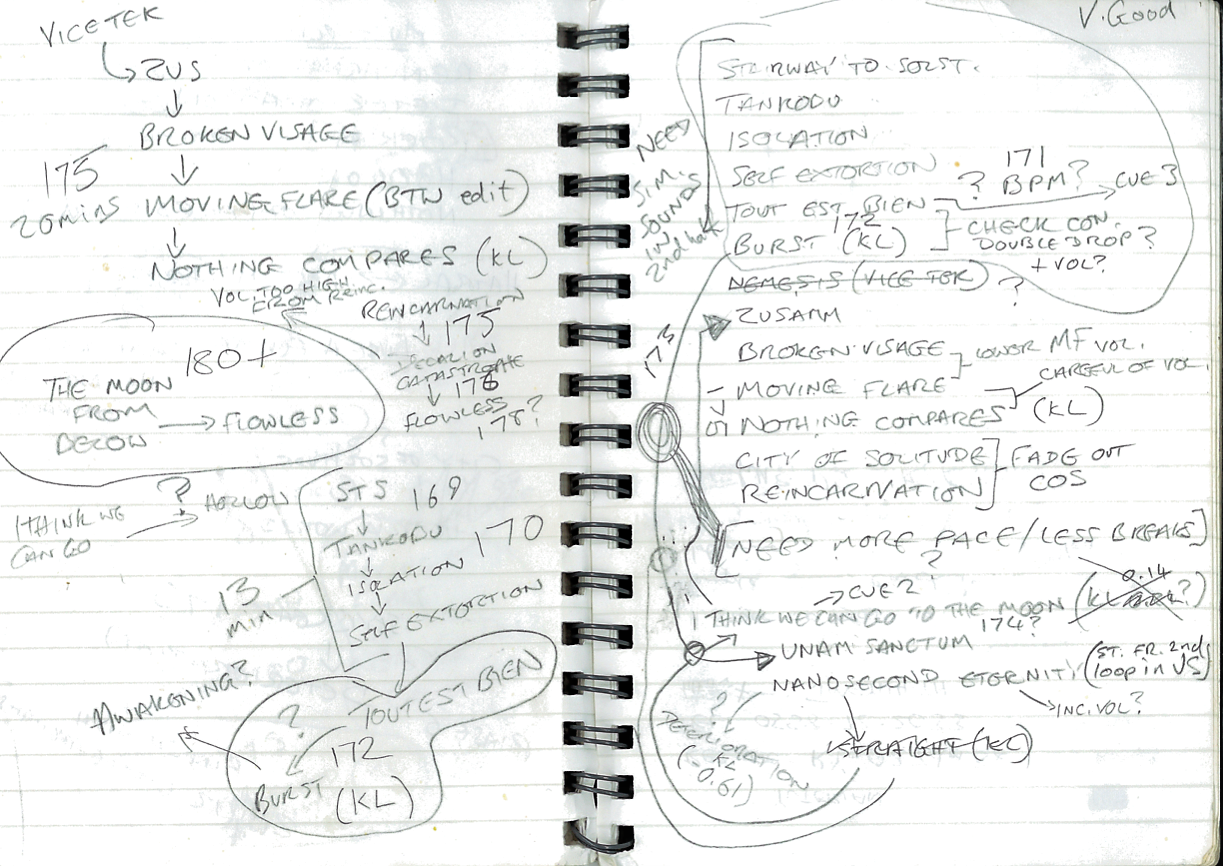 VICETEK
ZUS
BROKEN VISAGE
175
20mins MOVING FLARE (BTW edit)
NOTHING COMPARES (KL)
VOL TOO HIGH
FROM Reinc.
REINCARNATION
175
CATASTROPHE
176
FLOWLESS
178?
180+
THE MOON
FROM
BELOW → FLOWLESS
I THINK WE
CAN GO
? HOLLOW
STS 169
TANKODU 170
ISOLATION
SELF EXTORTION
13
min
TOUT EST BIEN
?
172
BURST (KL)
AWAKENING?
V. Good
STAIRWAY TO SOLST.
TANKODU
ISOLATION
SELF EXTORTION
TOUT EST BIEN ? 171 BPM? → CUE 3
BURST 172 (KL) CHECK CON.
DOUBLE DROP?
+ VOL?
NEED
SIM.
SOUNDS
IN
2nd half
NEMESIS (VICETEK) ?
ZUSAMM
173
BROKEN VISAGE LOWER MF VOL.
MOVING FLARE CAREFUL OF VOL.
or NOTHING COMPARES (KL)
CITY OF SOLITUDE FADE OUT
REINCARNATION COS
[NEED MORE PACE/LESS BREAKS]
?
→ CUE 2
I THINK WE CAN GO TO THE MOON (KL 0.14 ?)
174?
UNAM SANCTUM
NANOSECOND ETERNITY (ST. FR. 2nd
loop in US)
→ INC. VOL?
?
DETERIORATION
-0.61)
STRAIGHT (KL)